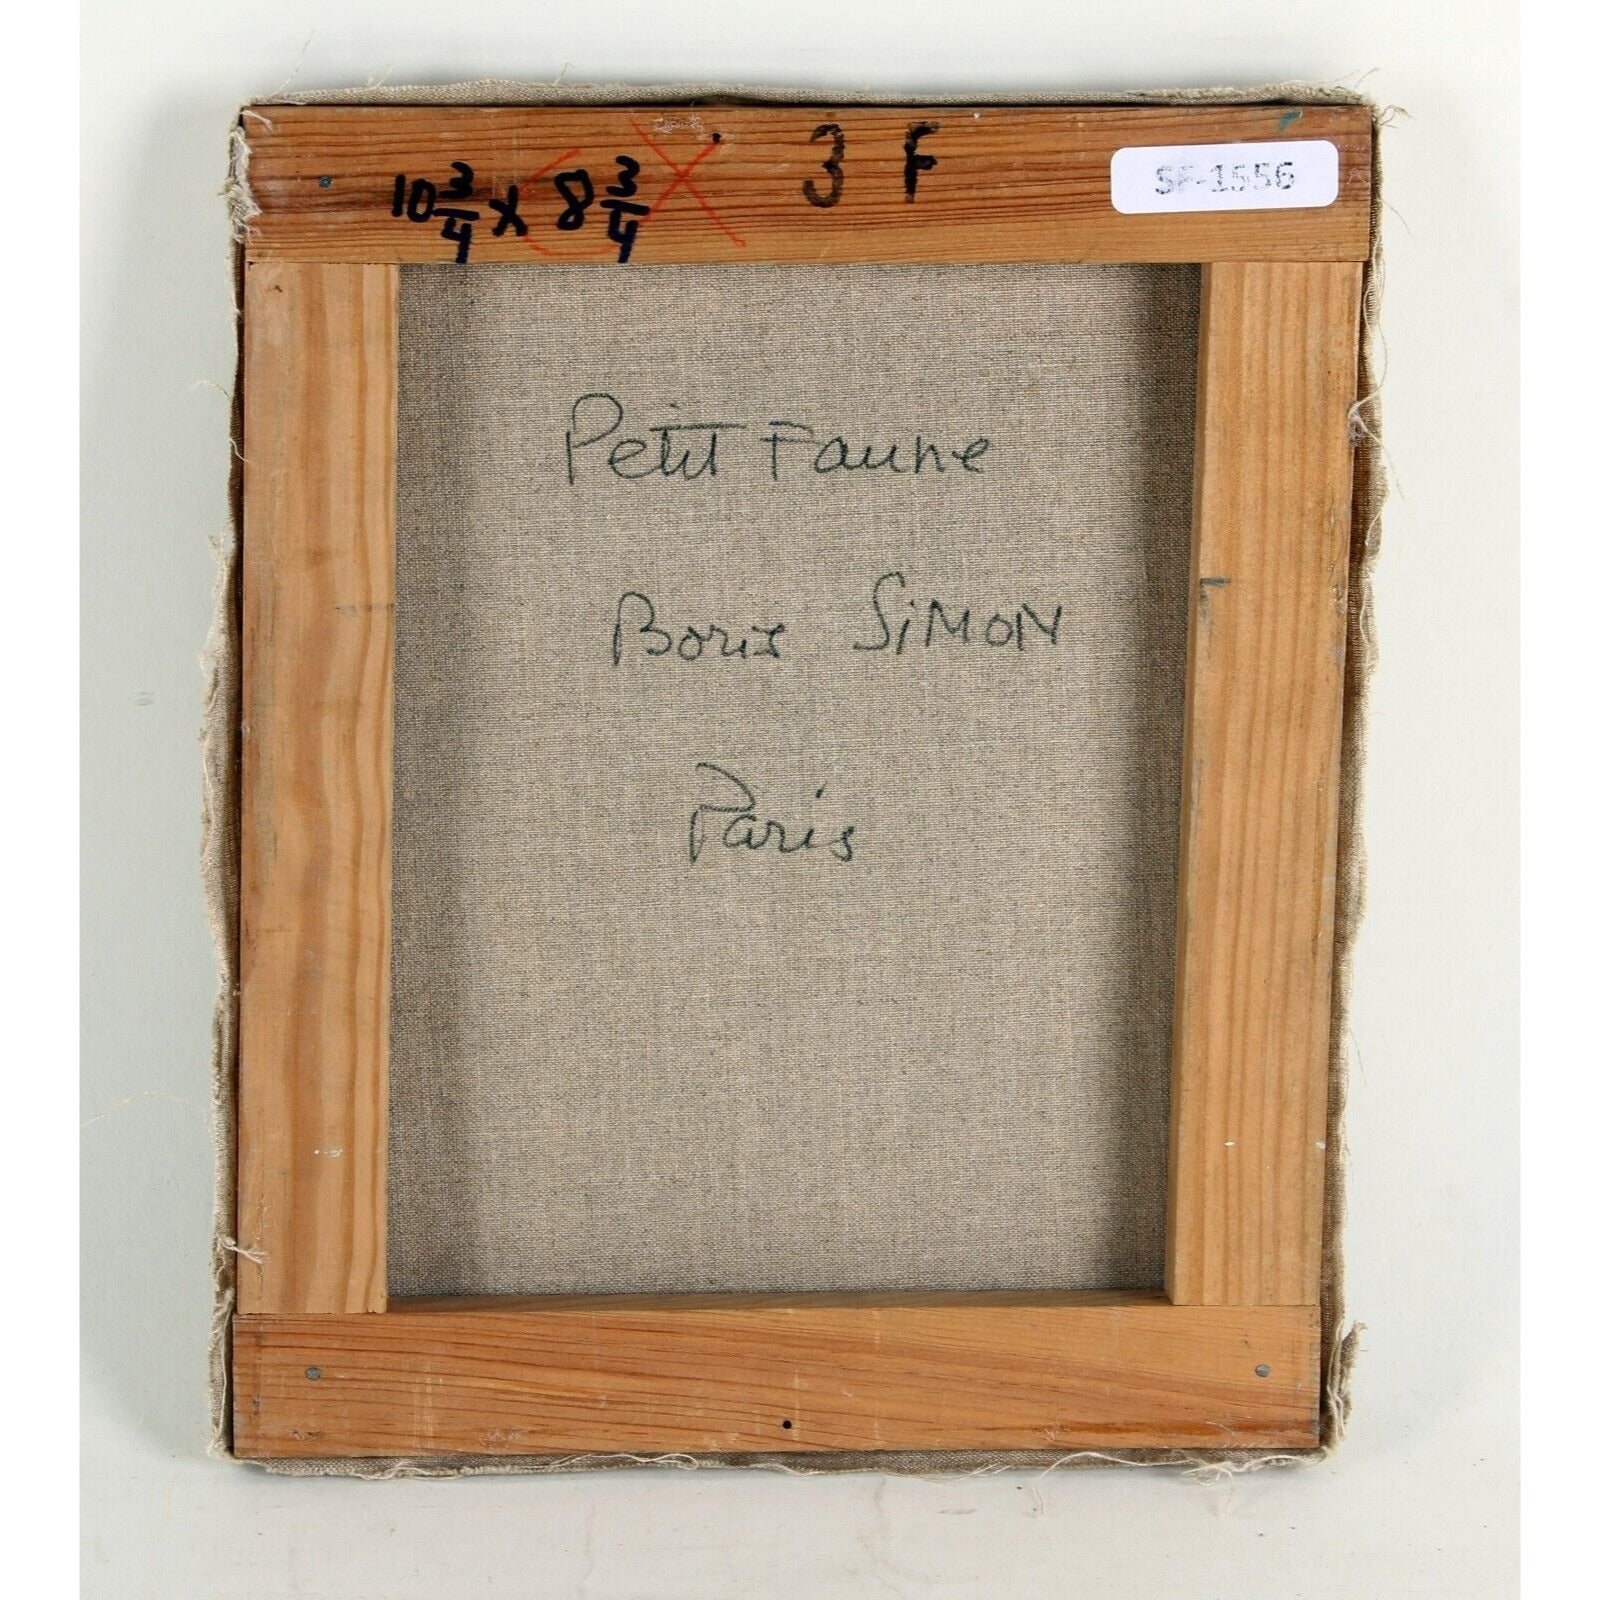 10 3/4 x 8 3/4 3 F SF-1556
Petit Faune
Boris SiMON
Paris